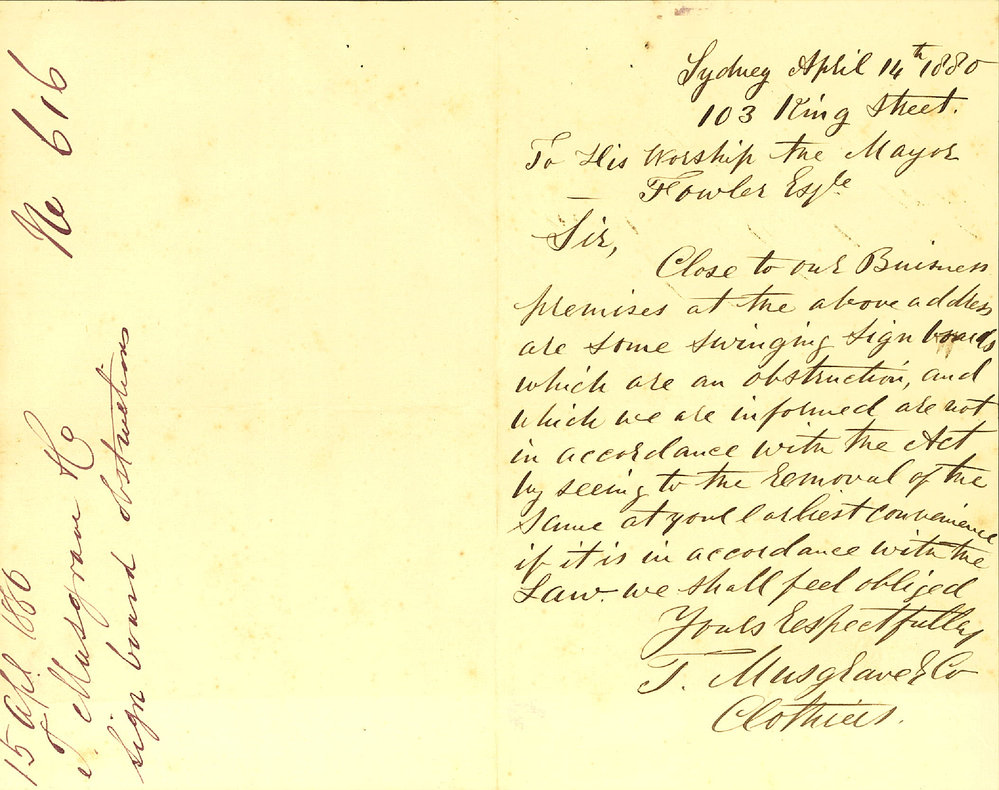 Sydney April 14th 1880
103 King Street.
To His Worship the Mayor
Fowler Esqre
Sir,
Close to our Buisness
premises at the above address
are some swinging sign boards
which are an obstruction, and
which we are informed are not
in accordance with the Act
by seeing to the removal of the
same at your earliest convenience
if it is in accordance with the
Law. we shall feel obliged
Yours respectfully
T. Musgrave & Co
Clothiers.
No 616
15 Apl. 1880
T. Musgrave & Co
sign board obstructions